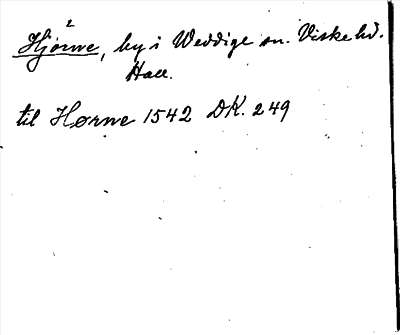 2
Hjörne, by i Weddige sn. Viske hd.
Hall.
til Hørne 1542 DK. 249